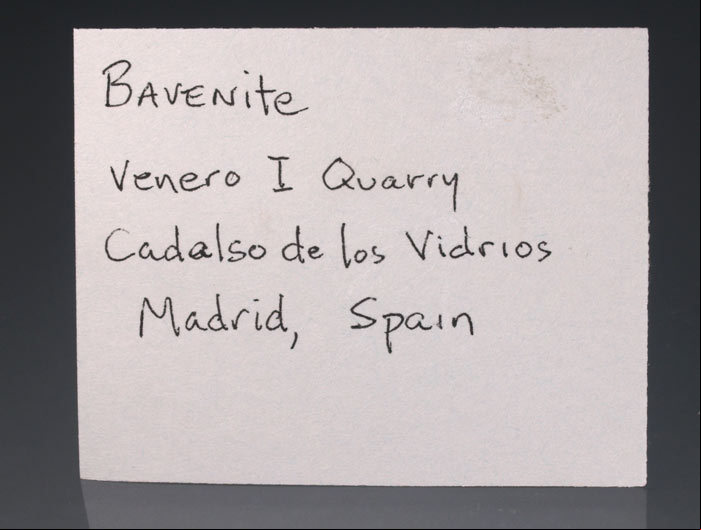 BAVENite
Venero I Quarry
Cadalso de los Vidrios
Madrid, Spain